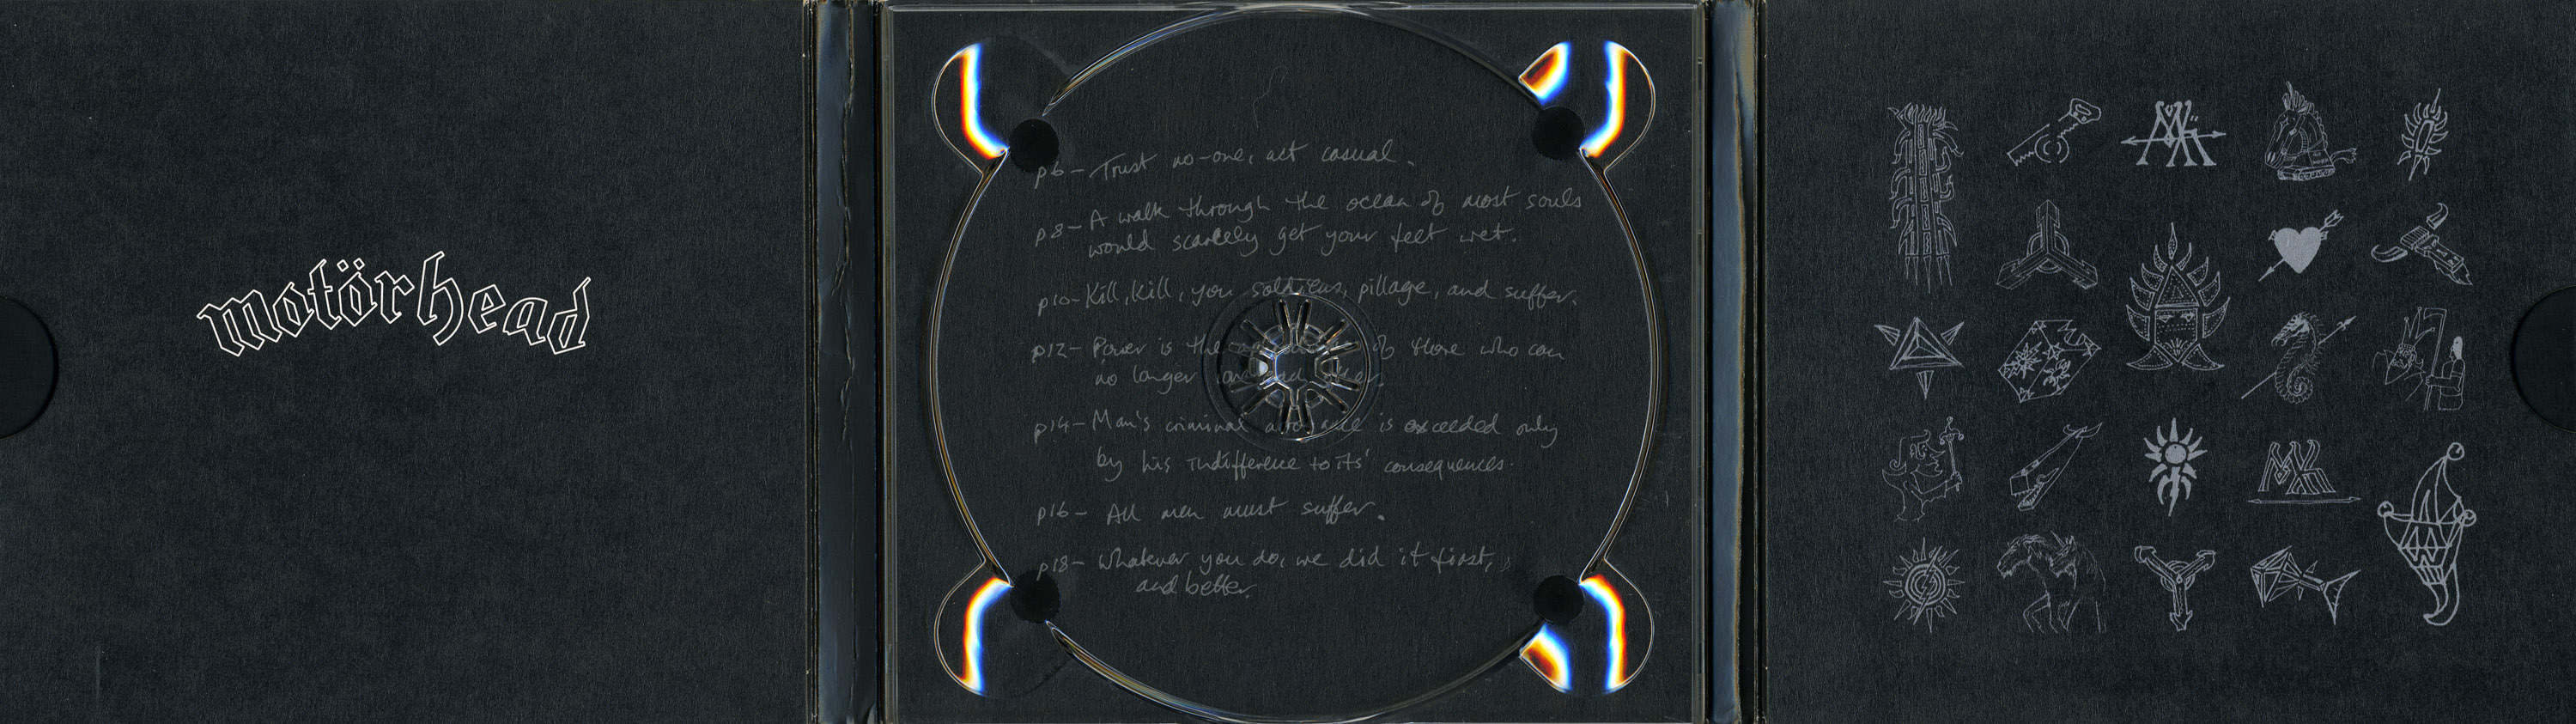 motörhead
p6 - Trust no-one, act casual.
p8 - A walk through the ocean of most souls
would scarcely get your feet wet.
p10 - Kill, Kill, you soldiers, pillage, and suffer.
p12 - Power is the of those who can
no longer
p14 - Man's criminal is exceeded only
by his indifference to its' consequences.
p16 - All men must suffer.
p18 - Whatever you do, we did it first,
and better.